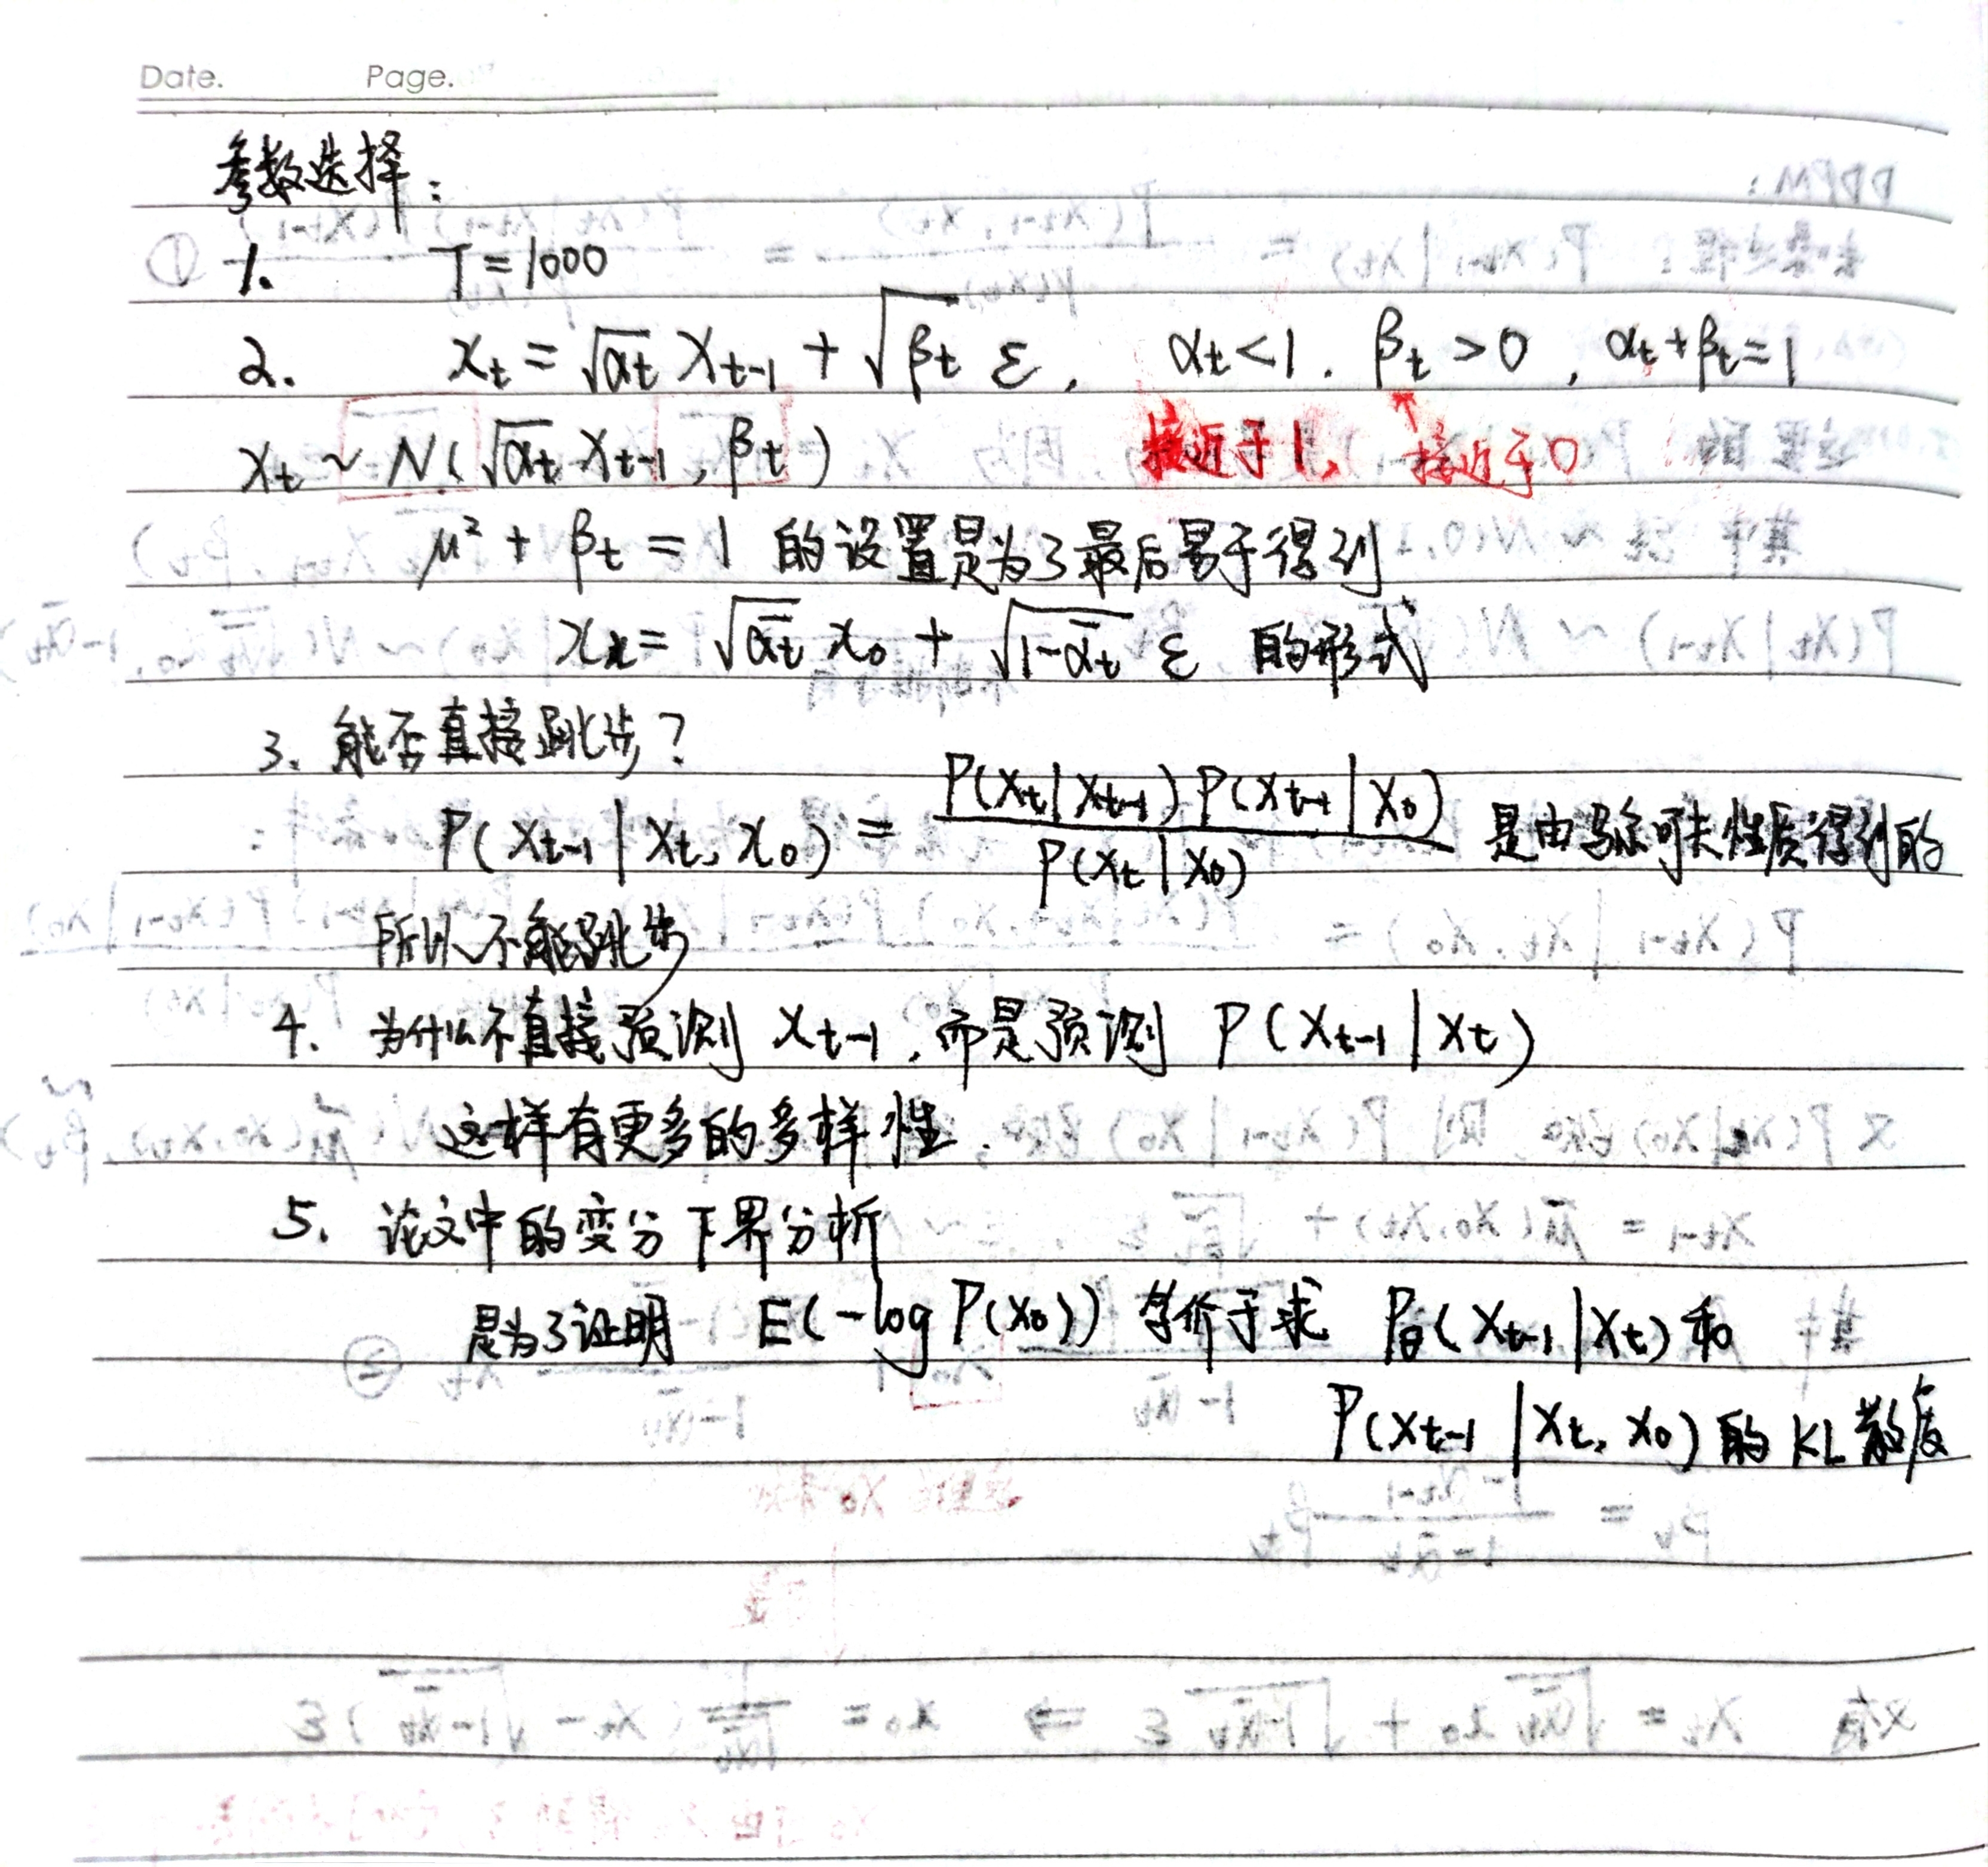 Date. Page.
参数选择：
1. T = 1000
2. x_t = √α_t x_{t-1} + √β_t ε, α_t < 1. β_t > 0, α_t + β_t = 1
接近于1, 接近于0
x_t ~ N(√α_t x_{t-1}, β_t)
μ² + β_t = 1 的设置是为了最后易于得到
x_t = √ᾱ_t x_0 + √1-ᾱ_t ε 的形式
3. 能否直接跳步？
P(x_{t-1} | x_t, x_0) = P(x_t | x_{t-1}) P(x_{t-1} | x_0) / P(x_t | x_0) 是由马尔可夫性质得到的
所以不能跳步
4. 为什么不直接预测 x_{t-1}, 而是预测 P(x_{t-1} | x_t)
这样有更多的多样性.
5. 论文中的变分下界分析
是为了证明 E(-log P(x_0)) 等价于求 P_θ(x_{t-1} | x_t) 和
P(x_{t-1} | x_t, x_0) 的 KL 散度